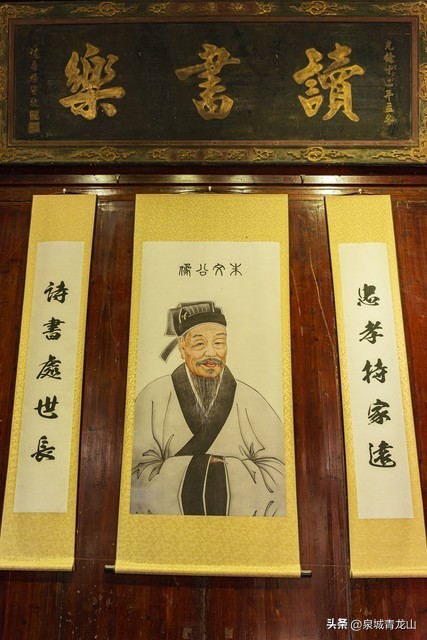 讀書樂
朱文公像
忠孝持家遠
詩書處世長
头条 @泉城青龙山